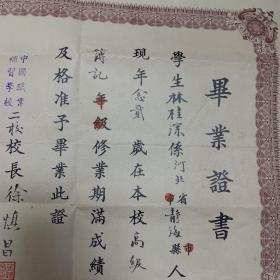 畢業證書
學生林桂深係河北省靜海縣市人
現年念貳歲在本校高級
簿記年級修業期滿成績
及格准予畢業此證
中國職業
補習學校
二校校長徐慎昌